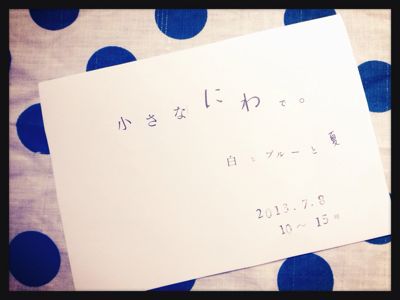 小さなにわで。
白とブルーと夏
2013.7.8
10〜15時